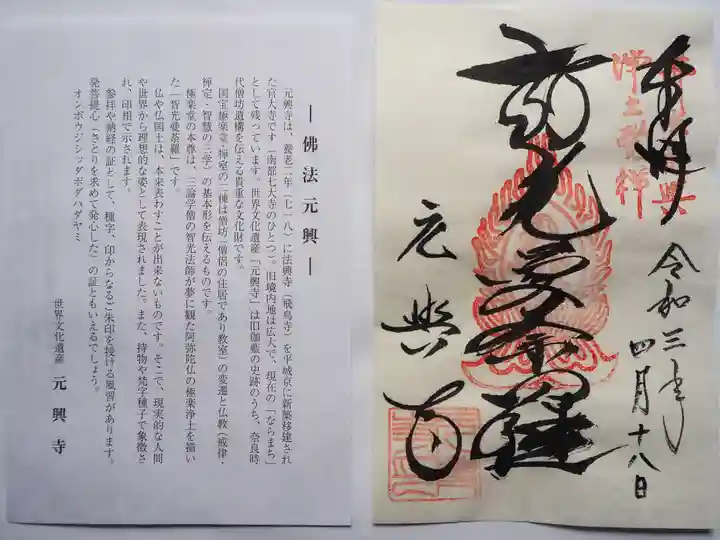 奉拝
佛法元興
浄土発祥
令和三年
四月十八日
智光曼荼羅
元興寺
―佛法元興―
元興寺は、養老二年(七一八)に法興寺(飛鳥寺)を平城京に新築移建され
た官大寺です(南都七大寺のひとつ)。旧境内地は広大で、現在の「ならまち」
として残っています。世界文化遺産「元興寺」は旧伽藍の史跡のうち、奈良時
代僧坊遺構を伝える貴重な文化財です。
国宝極楽堂・禅室の二棟は僧坊(僧侶の住居であり教室)の変遷と仏教(戒律・
禅定・智慧の三学)の基本形を伝えるものです。
極楽堂の本尊は、三論学僧の智光法師が夢に観た阿弥陀仏の極楽浄土を描い
た「智光曼荼羅」です。
仏や仏国土は、本来表わすことが出来ないものです。そこで、現実的な人間
や世界から理想的な姿として表現されました。また、持物や梵字種子で象徴さ
れ、印相で示されます。
参拝や納経の証として、種字、印からなるご朱印を授ける風習があります。
発菩提心(さとりを求めて発心した)の証ともいえるでしょう。
オンボウジシッダボダハダヤミ
世界文化遺産 元興寺